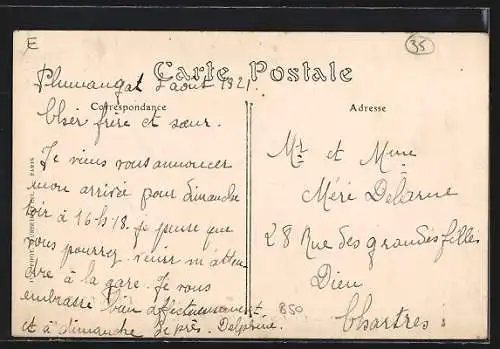 E
35
Carte Postale
Plumaugat 2 août 1921.
Correspondance
Cher frère et sœur.
Je viens vous annoncer
mon arrivée pour dimanche
soir à 16-h-18. je pense que
vous pourrez venir m'atten-
dre à la gare. Je vous
embrasse bien affectueusement
et à dimanche Delphine.
Adresse
Mr et Mme
Méri Delarue
28 Rue des grandes filles
Dieu
Chartres
850